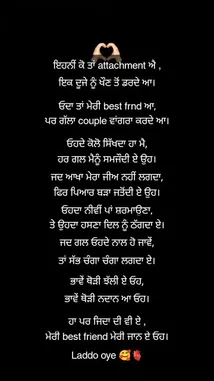 ਇਹਨੀਂ ਕੋ ਤਾਂ attachment ਐ ,
ਇਕ ਦੂਜੇ ਨੂੰ ਖੌਣ ਤੋਂ ਡਰਦੇ ਆ।
ਓਦਾ ਤਾਂ ਮੇਰੀ best frnd ਆ,
ਪਰ ਗੱਲਾ couple ਵਾਂਗਰਾ ਕਰਦੇ ਆ।
ਓਹਦੇ ਕੋਲੋ ਸਿੱਖਦਾ ਹਾ ਮੈ,
ਹਰ ਗਲ ਮੈਨੂੰ ਸਮਜੌਦੀ ਏ ਉਹ।
ਜਦ ਆਖਾ ਮੇਰਾ ਜੀਅ ਨਹੀਂ ਲਗਦਾ,
ਫਿਰ ਪਿਆਰ ਬੜਾ ਜਤੋਂਦੀ ਏ ਉਹ।
ਓਹਦਾ ਨੀਵੀਂ ਪਾਂ ਸ਼ਰਮਾਉਣਾ,
ਤੇ ਉਹਦਾ ਹਸਣਾ ਦਿਲ ਨੂੰ ਠੱਗਦਾ ਏ।
ਜਦ ਗਲ ਓਹਦੇ ਨਾਲ ਹੋ ਜਾਵੇਂ,
ਤਾਂ ਸੱਭ ਚੰਗਾ ਚੰਗਾ ਲਗਦਾ ਏ।
ਭਾਵੇਂ ਥੋੜੀ ਝੱਲੀ ਏ ਓਹ,
ਭਾਵੇਂ ਥੋੜੀ ਨਦਾਨ ਆ ਓਹ।
ਹਾ ਪਰ ਜਿਦਾ ਦੀ ਵੀ ਏ ,
ਮੇਰੀ best friend ਮੇਰੀ ਜਾਨ ਏ ਓਹ।
Laddo oye 🥰🫀